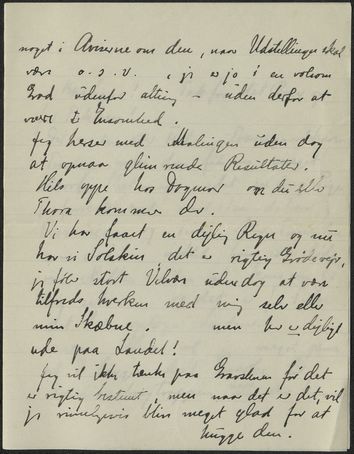 noget i Aviserne om den, naar Udstillingen skal
være o.s.v., jeg er jo i en voldsom
Grad udenfor alting – uden derfor at
være i Ensomhed.
Jeg herser med Malingen uden dog
at opnaa glimrende Resultater.
Hils oppe hos Dagmar om du eller
Thora kommer der.
Vi har faaet en dejlig Regn og nu
har vi Solskin, det er rigtig Grødevejr,
jeg føler stort Velvære uden dog at være
tilfreds hverken med mig selv eller
min Skæbne. men her er dejligt
ude paa Landet!
Jeg vil ikke tænke paa Gravstenen før det
er rigtig bestemt, men naar det er det, vil
jeg rimeligvis blive meget glad for at
hugge den.